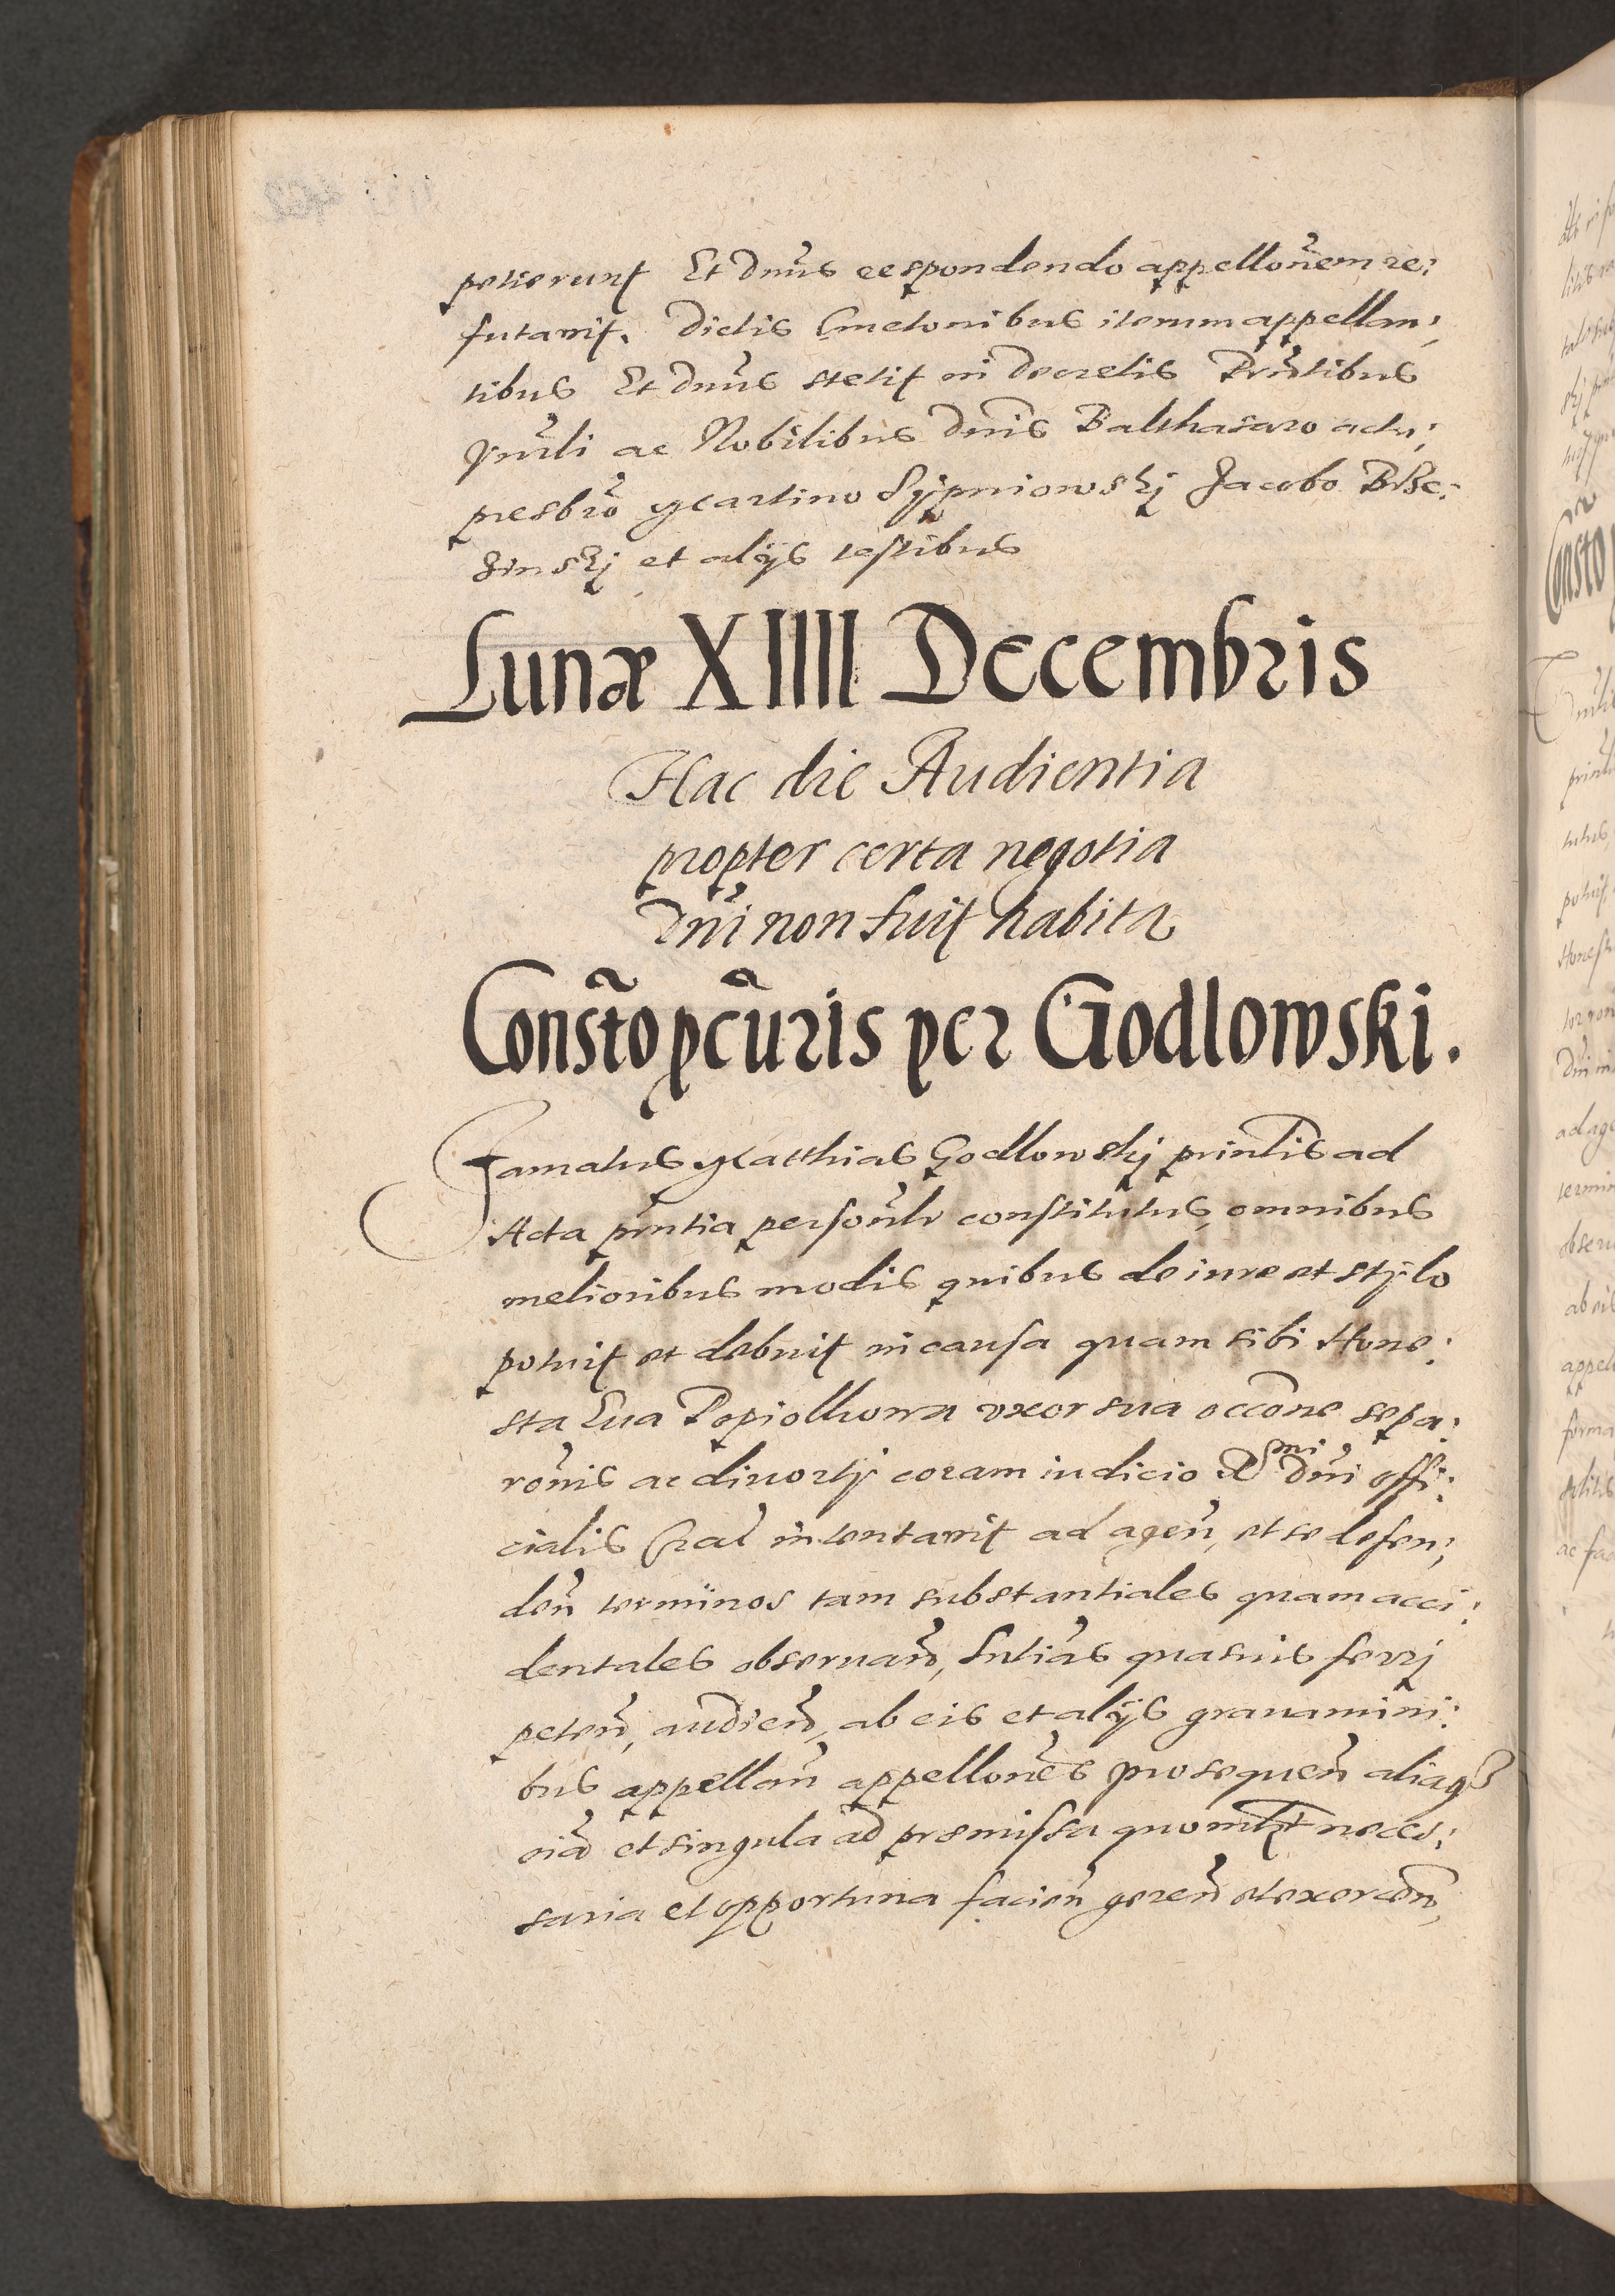 petierunt Et dnus respondendo appellonem re:
futavit. Dictis Cmetonibus iterum appellan:
tibus Et dnus stetit in decretis Pntibus
ac Nobilibus Dnis Balthasaro
presbro Martino Sijpniowskj Jacobo
et alijs testibus
Lunæ XIIII Decembris
Hac die Audientia
propter certa negotia
Dni non fuit habita
Consto pcuris per Godlowski.
Famatus Matthias Godlowskj ad
Acta pntia personlr constitutus, omnibus
melioribus modis quibus de iure et stylo
potuit et debuit in causa quam sibi Hone:
sta Eua Popiolkowa vxor sua occone sepa:
ronis ac divortij coram iudicio Rmi dni offi:
cialis Cral intentavit ad agen, et se defen:
den terminos tam substantiales quam acci:
dentales obseruan, sntias quasuis ferrj
peten, audien, ab eis et alijs grauamini:
bus appellan appellones prosequen aliaqz
oia et singula ad premissa quomlt neces:
saria et opportuna facien geren et exercen,